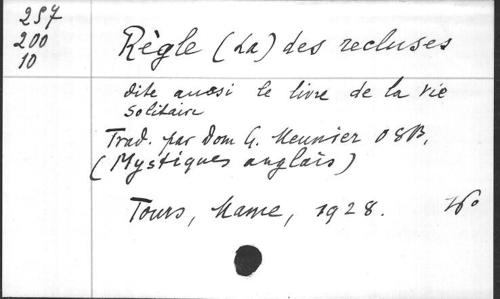 257
200
10
Règle (La) des recluses
dite aussi le livre de la vie
solitaire
Trad. par Dom G. Meunier OSB,
(Mystiques anglais)
Tours, Mame, 1928.